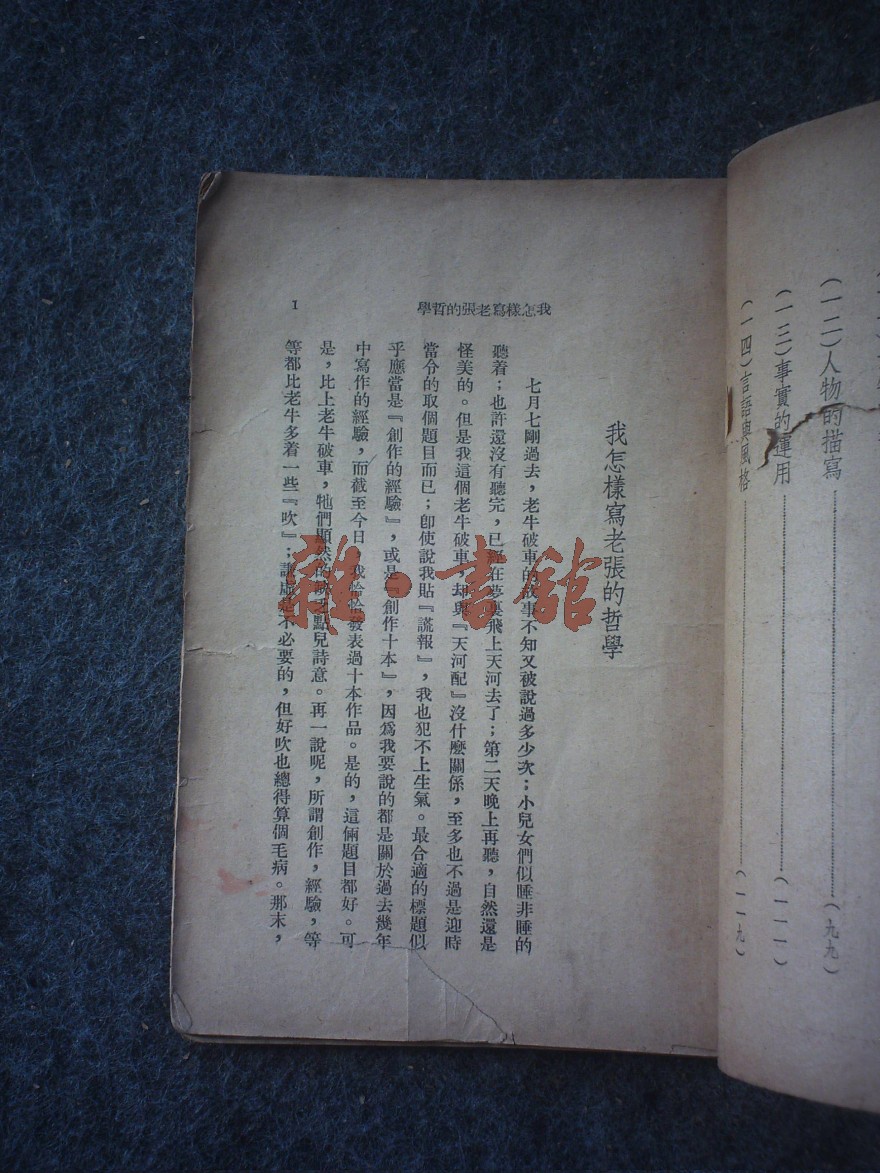 (一二)人物的描寫……(九九)
(一三)事實的運用……(一一一)
(一四)言語與風格……(一一九)
我怎樣寫老張的哲學
1
我怎樣寫老張的哲學
七月七剛過去,老牛破車的故事不知又被說過多少次;小兒女們似睡非睡的
聽着;也許還沒有聽完,已經在夢裏飛上天河去了;第二天晚上再聽,自然還是
怪美的。但是我這個老牛破車,却與『天河配』沒什麼關係,至多也不過是迎時
當令的取個題目而已;卽使說我貼『謊報』,我也犯不上生氣。最合適的標題似
乎應當是『創作的經驗』,或是『創作十本』,因爲我要說的都是關於過去幾年
中寫作的經驗,而截至今日,我恰恰發表過十本作品。是的,這倆題目都好。可
是,比上老牛破車,牠們顯然的缺乏點兒詩意。再一說呢,所謂創作,經驗,等
等都比老牛多着一些『吹』;謙虛是不必要的,但好吹也總得算個毛病。那末,
雜·書館